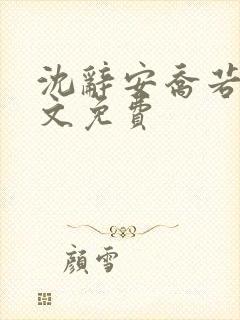 沈辭安喬若
文免費
顏雪